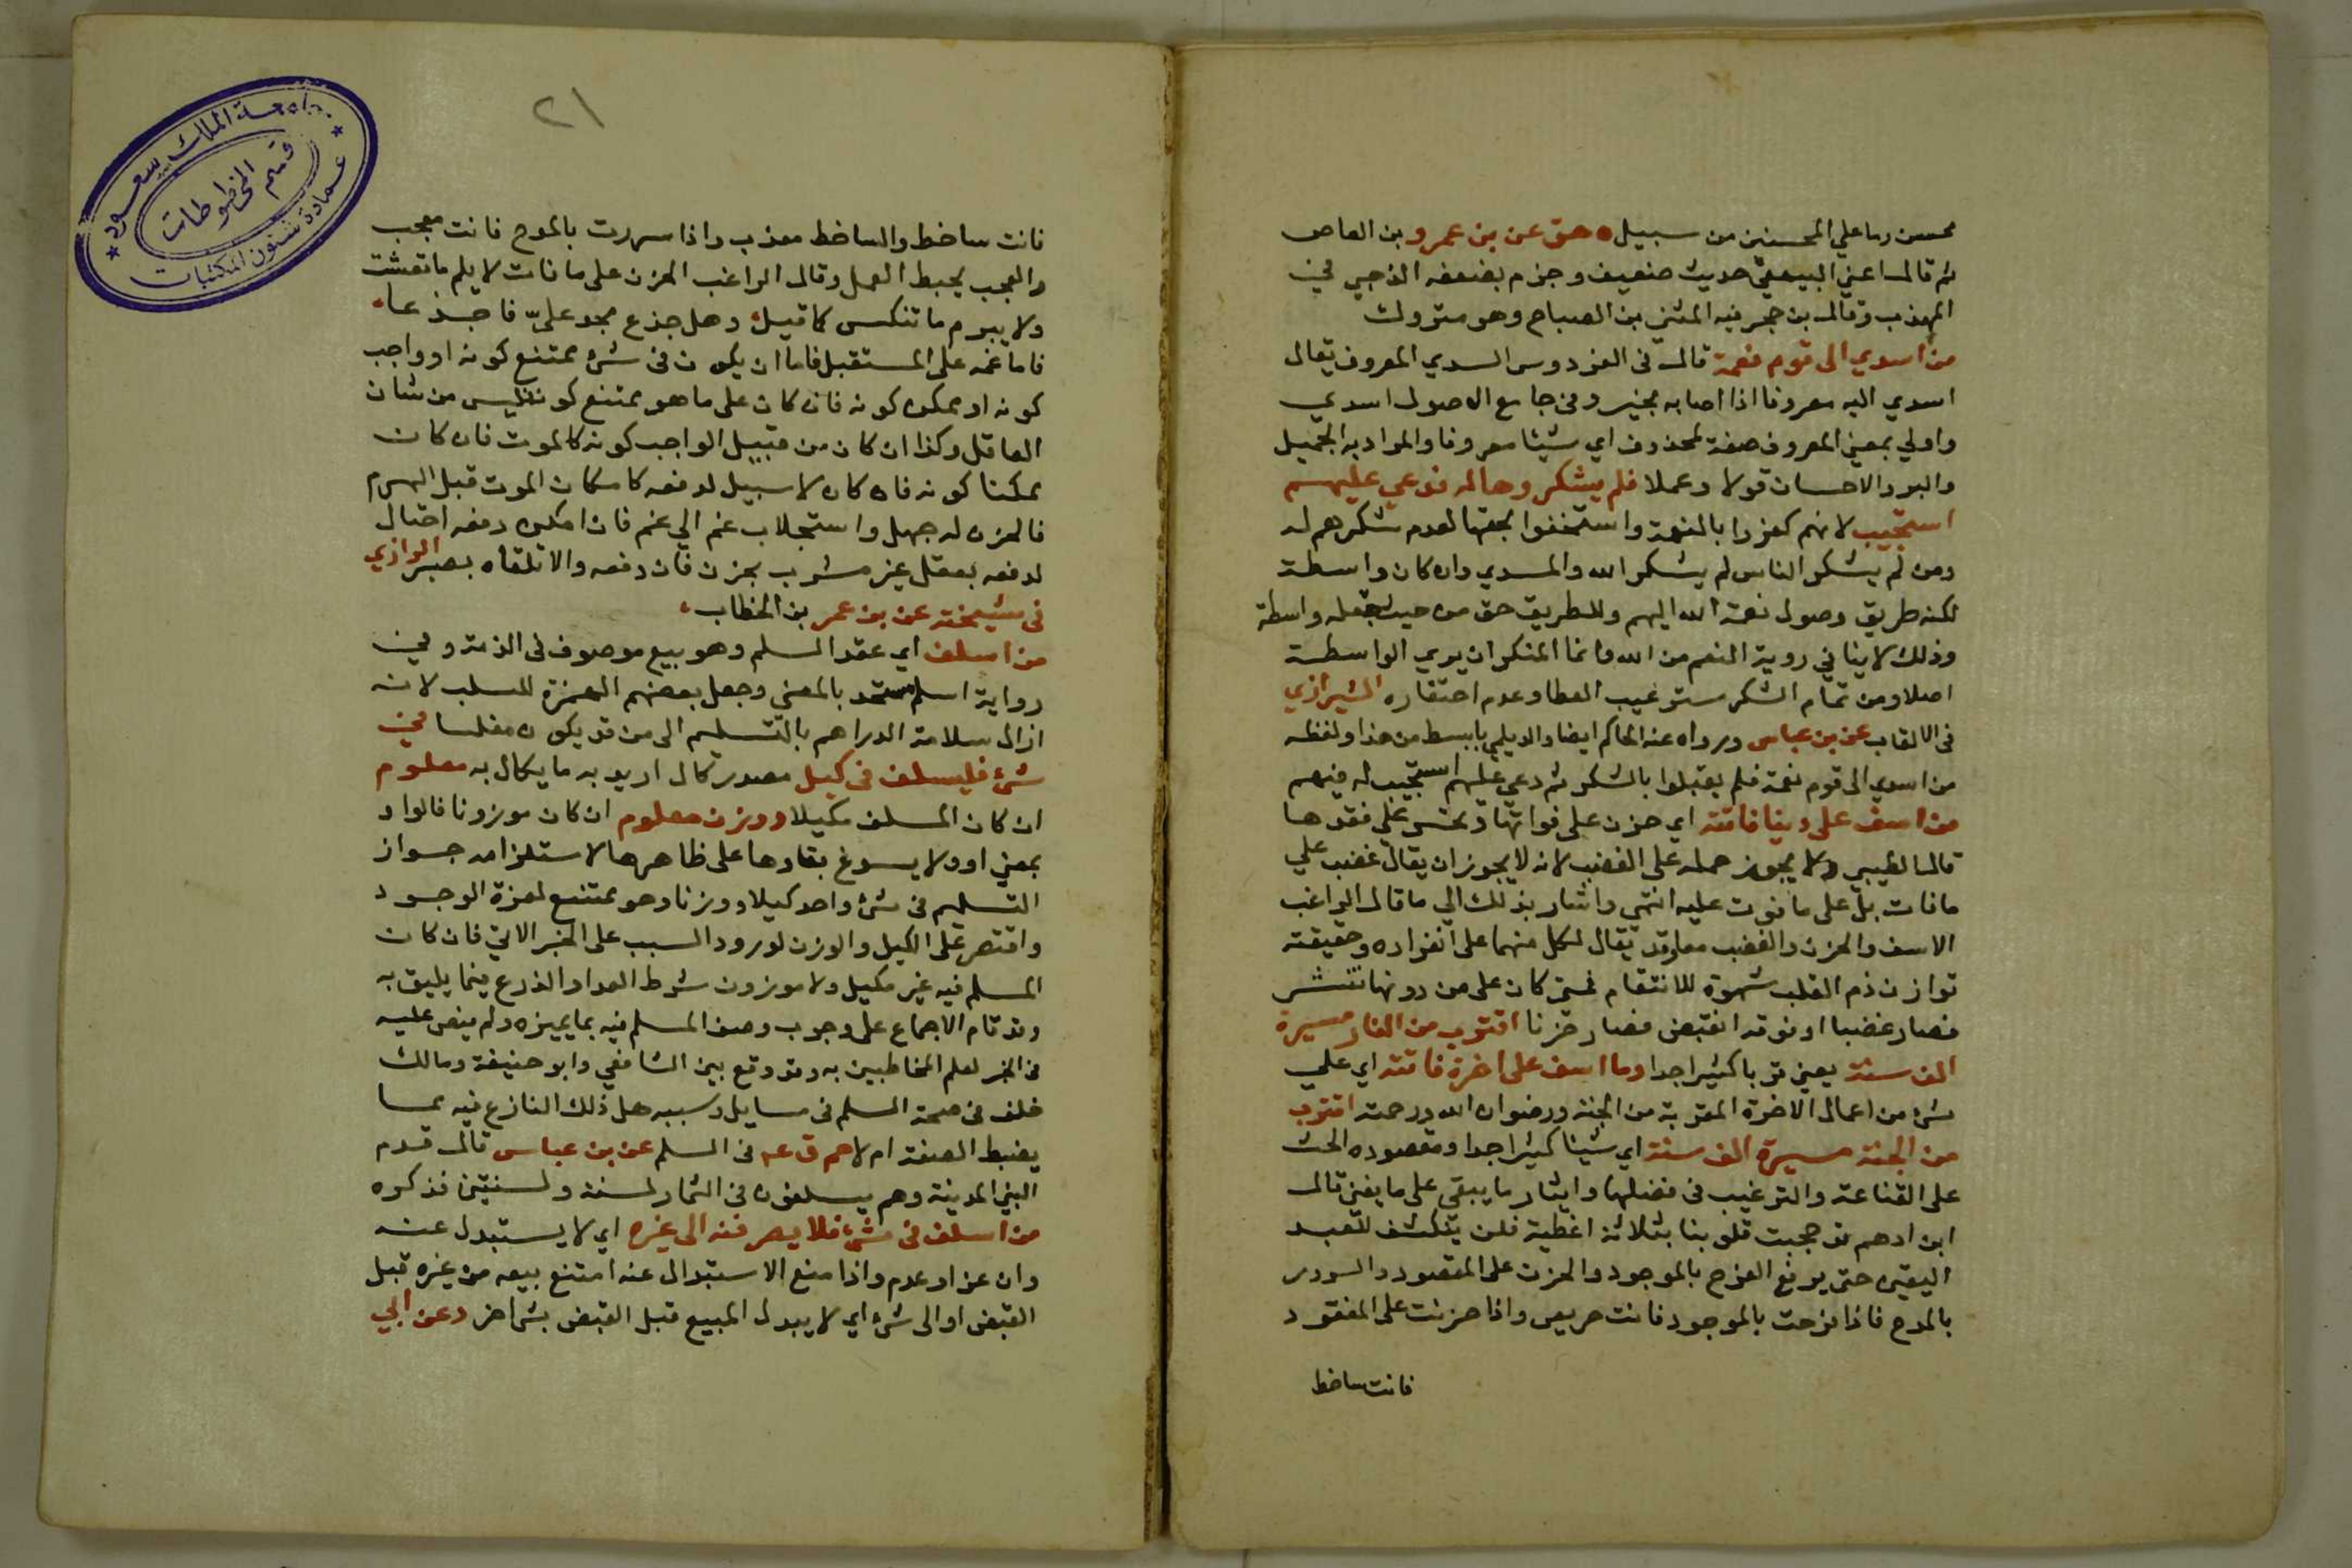 محسن وما علي المحسنين من سبيل ه هق عن بن عمرو بن العاص
ثم قال اعني البيهقي حديث ضعيف وجزم بضعفه الذهبي في
المهذب وقال بن حجر فيه المثني بن الصباح وهو متروك
من اسدي الى قوم نعمة قال في الفردوس السدي المعروف يقال
اسدي اليه معروفا اذا اصابه بخير وفي جامع الاصول اسدي
واولي بمعني المعروف صفة لمحذوف اي شيئا معروفا والمراد به الجميل
والبر والاحسان قولا وعملا فلم يشكروها له فدعي عليهم
استجيب لانهم كفروا بالنعمة واستخفوا بحقها لعدم شكرهم له
ومن لم يشكر الناس لم يشكر الله والمسدي وان كان واسطة
لكنه طريق وصول نعمة الله اليهم وللطريق حق من حيث جعله واسطة
وذلك لا ينافي روية النعم من الله وانما المنكر ان يري الواسطة
اصلا ومن تمام الشكر ستر عيب العطا وعدم احتقاره الشيرازي
في الالقاب عن بن عباس ورواه عنه الحاكم ايضا والديلمي بابسط من هذا ولفظه
من اسدي الى قوم نعمة فلم يقبلوا بالشكر ثم دعي عليهم استجيب له فيهم
من اسف على دنيا فاتته اي حزن على فواتها وتحسر على فقدها
قال الطيبي ولا يجوز حمله على الغضب لانه لا يجوز ان يقال غضب علي
ما فات بل على ما فوت عليه انتهى واشار بذلك الي ما قال الراغب
الاسف والحزن والغضب معا وقد يقال لكل منهما على انفراده وحقيقته
ثوران دم القلب شهوة للانتقام فمتى كان على من دونها تنتشر
فصار غضبا او فوقه انقبض فصار حزنا اقترب من النار مسيرة
الف سنة يعني قربا كثيرا جدا وما اسف على اخرة فاتته اي علي
شيء من اعمال الاخرة المقربة من الجنة ورضوان الله ورحمته اقترب
من الجنة مسيرة الف سنة اي شيئا كثيرا جدا ومقصوده الحث
على القناعة والترغيب في فضلها وايثار ما يبقى على ما يفنى قال
ابن ادهم قد حجبت قلوبنا بثلاثة اغطية فلن يتكشف للعبد
اليقين حتى يرفع الفرح بالموجود والحزن على المفقود والسرور
بالمدح فاذا فرحت بالموجود فانت حريص واذا حزنت على المفقود
فانت ساخط
٢١
جامعة الملك سعود
قسم المخطوطات
عمادة شئون المكتبات
فانت ساخط والساخط معذب واذا سررت بالمدح فانت معجب
والعجب يحبط العمل وقال الراغب الحزن على ما فات لا يلم ما تشعث
ولا يبرم ما تنكس كما قيل وهل جذع مجد عليّ فاجذعا
فاما غمه على المستقبل فاما ان يكون في شيء ممتنع كونه او واجب
كونه او ممكن كونه فان كان على ما هو ممتنع كونه فليس من شان
العاقل وكذا ان كان من قبيل الواجب كونه كالموت فان كان
ممكنا كونه فان كان لا سبيل لدفعه كامكان الموت قبل الهرم
فالحزن له جهل واستجلاب غم الي غم فان امكن دفعه احتال
لدفعه بعقل غير مشوب بحزن فان دفعه والا تلقاه بصبر الرازي
في مشيخته عن بن عمر بن الخطاب
من اسلف اي عقد السلم وهو بيع موصوف في الذمة وفي
رواية اسلم متحد بالمعني وجعل بعضهم الهمزة للسلب لانه
ازال سلامة الدراهم بالتسليم الى من قد يكون مفلسا في
شيء فليسلف في كيل مصدر كال اريد به ما يكال به معلوم
ان كان المسلف مكيلا ووزن معلوم ان كان موزونا فالواو
بمعني او ولا يسوغ بقاوها على ظاهرها لاستلزامه جواز
التسليم في شيء واحد كيلا ووزنا وهو ممتنع لعزة الوجود
واقتصر على الكيل والوزن لورود السبب على الخبر الاتي فان كان
المسلم فيه غير مكيل ولا موزون شرط العد او الذرع فيما يليق به
وقد قام الاجماع على وجوب وصف المسلم فيه بما يميزه ولم ينص عليه
في الخبر لعلم المخاطبين به وقد وقع بين الشافعي وابو حنيفة ومالك
خلف في صحة السلم في مسايل وسببه هل ذلك النازع فيه مما
يضبط الصفة ام لا حم ق عه في السلم عن بن عباس قال قدم
النبي المدينة وهم يسلفون في الثمار لسنة ولسنتين فذكره
من اسلف في شيء فلا يصرفنه الى غيره اي لا يستبدل عنه
وان عز او عدم واذا منع الاستبدال عنه امتنع بيعه من غيره قبل
القبض او الى شيء اي لا يبدل المبيع قبل القبض بشي اخر د عن ابي